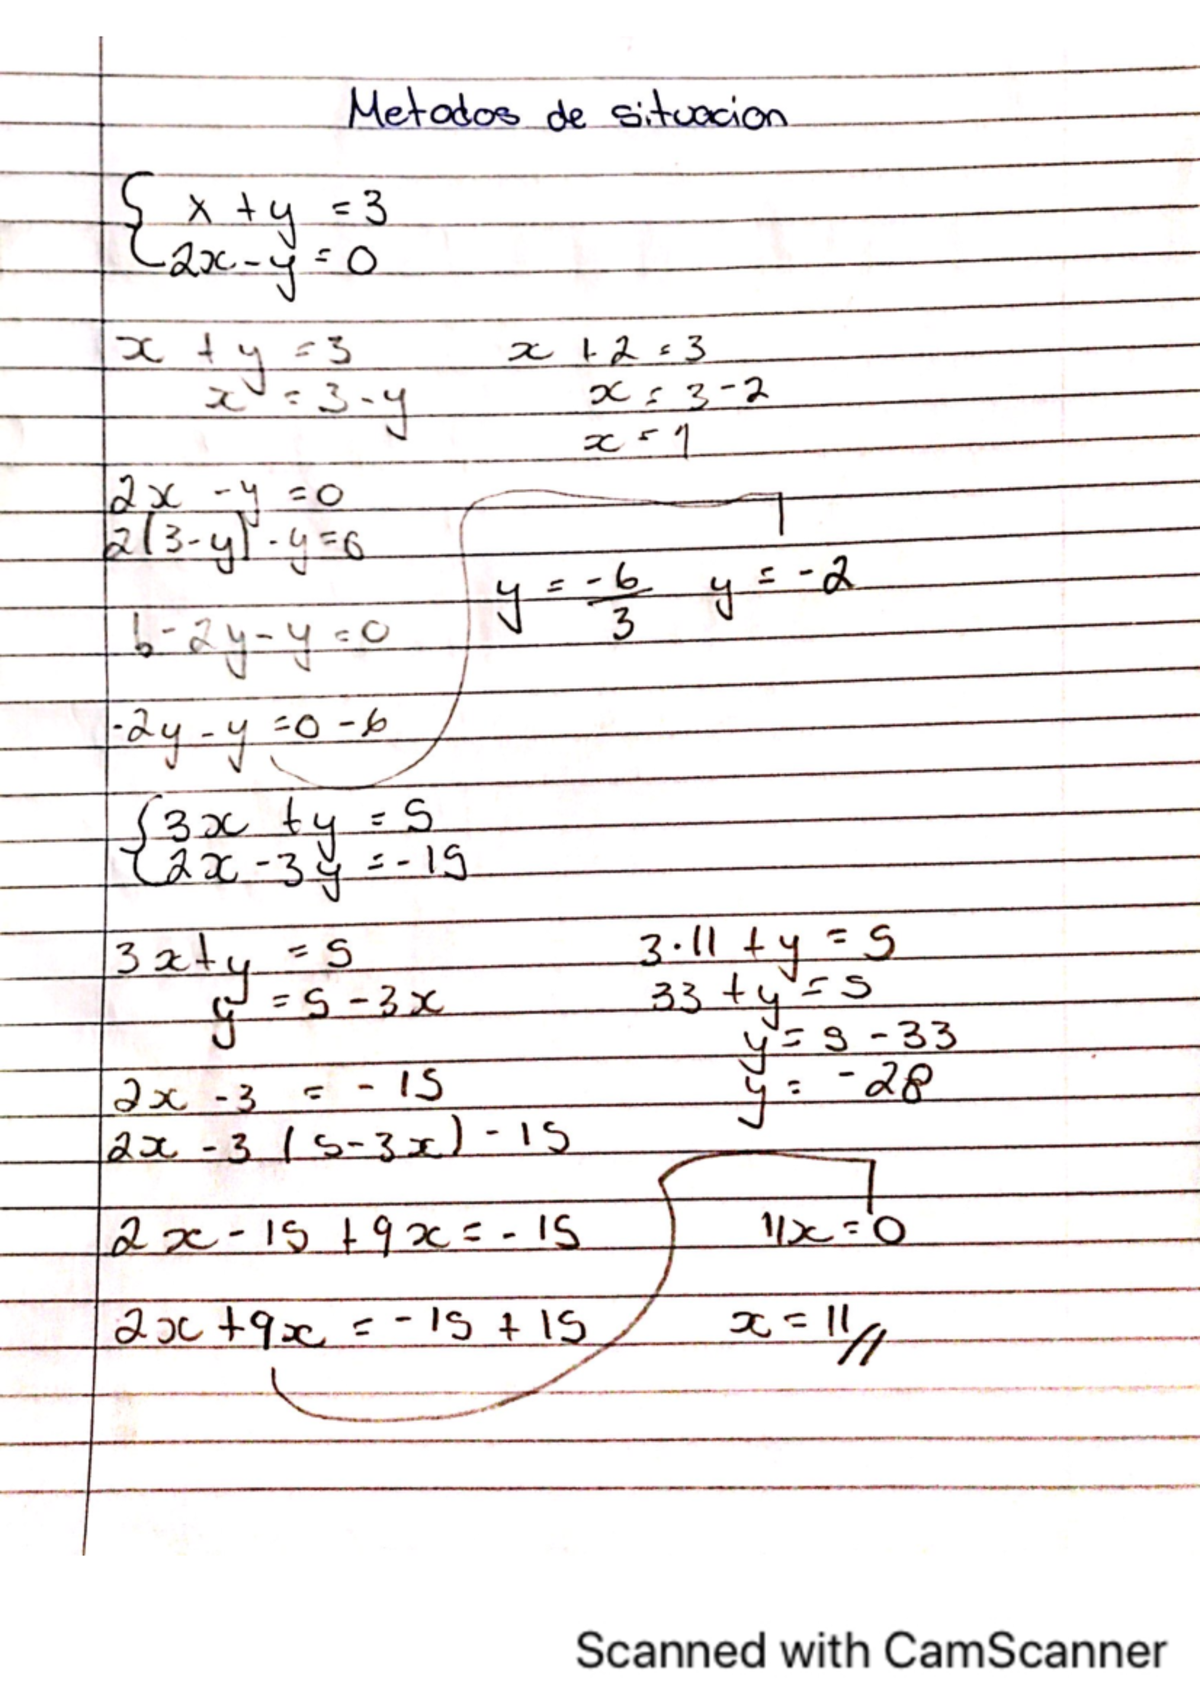 Metodos de situacion
x + y = 3
2x - y = 0
x + y = 3
x = 3 - y
x + 2 = 3
x = 3 - 2
x = 1
2x - y = 0
2(3-y) - y = 6
6 - 2y - y = 0
-2y - y = 0 - 6
y = -6/3 y = -2
3x + y = 5
2x - 3y = -15
3x + y = 5
y = 5 - 3x
3·11 + y = 5
33 + y = 5
y = 5 - 33
y = -28
2x - 3 = -15
2x - 3 (5-3x) -15
2x - 15 + 9x = -15
2x + 9x = -15 + 15
11x = 0
x = 11//
Scanned with CamScanner